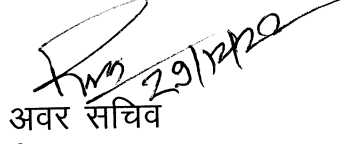 29/12/20
अवर सचिव